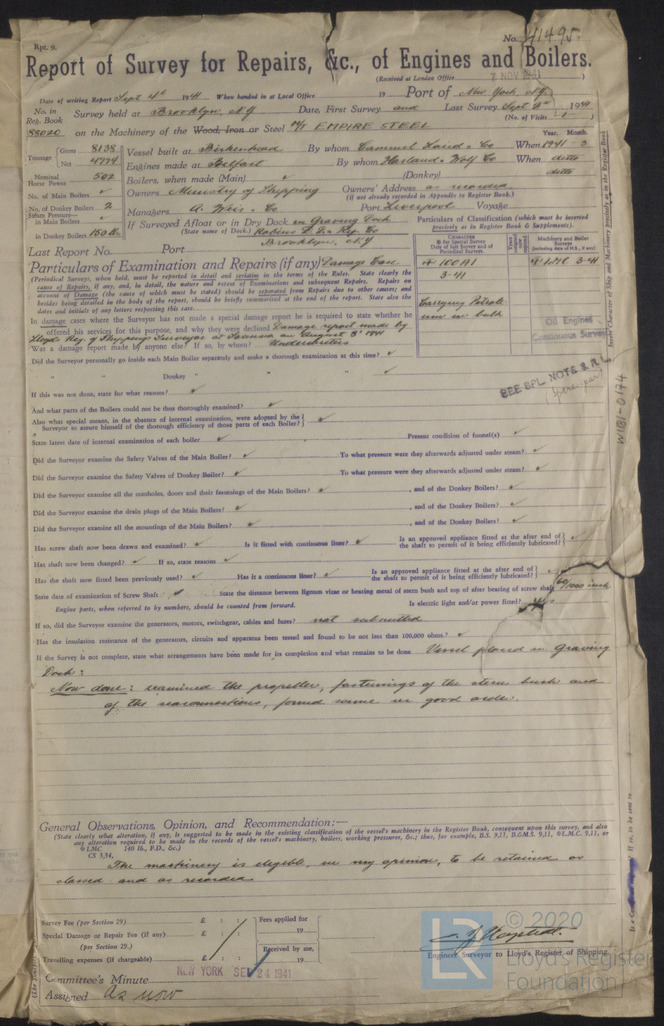 Rpt. 9.
No. 41495
Report of Survey for Repairs, &c., of Engines and Boilers.
(Received at London Office 7 NOV 1941)
Date of writing Report Sept 4th 1941 When handed in at Local Office 19 Port of New York, N.Y.
No. in Reg. Book Survey held at Brooklyn, N.Y Date, First Survey and Last Survey Sept 2nd 1941
(No. of Visits 1)
88020 on the Machinery of the Wood, Iron or Steel M/V EMPIRE STEEL
Tonnage Gross 8138 Net 4774
Vessel built at Birkenhead By whom Cammell Laird & Co When 1941 - 3
Year. Month.
Engines made at Belfast By whom Harland & Wolf Co When ditto
Nominal Horse Power 502
Boilers, when made (Main) ✓ (Donkey) ditto
No. of Main Boilers ✓
Owners Ministry of Shipping Owners' Address as recorded
(if not already recorded in Appendix to Register Book.)
No. of Donkey Boilers 2
Managers A. Weir & Co Port Liverpool Voyage
Steam Pressure— in Main Boilers ✓
in Donkey Boilers 150 lbs
If Surveyed Afloat or in Dry Dock in Graving Dock
(State name of Dock.) Robins D. D. & Rep. Co
Brooklyn, N.Y
Particulars of Classification (which must be inserted precisely as in Register Book & Supplements).
Last Report No. Port
Particulars of Examination and Repairs (if any) Damage Case
(Periodical Surveys, when held, must be reported in detail and seriatim in the terms of the Rules. State clearly the
cause of Repairs, if any, and, in detail, the nature and extent of Examinations and subsequent Repairs. Repairs on
account of Damage (the cause of which must be stated) should be separated from Repairs due to other causes; and
besides being detailed in the body of the report, should be briefly summarised at the end of the report. State also the
dates and initials of any letters respecting this case.
+ 100A1
3-41
+ LMC 3-41
Carrying Petroleum in bulk
Oil Engines
Continuous Survey
In damage cases where the Surveyor has not made a special damage report he is required to state whether he
offered his services for this purpose, and why they were declined Damage report made by
Lloyds Reg. of Shipping Surveyor at on August 8th 1941
Was a damage report made by anyone else? If so, by whom? Underwriters
Did the Surveyor personally go inside each Main Boiler separately and make a thorough examination at this time? ✓
" " Donkey " " " ✓
SEE BPL NOTE S.R.L.
W181-0174
If this was not done, state for what reason? ✓
And what parts of the Boilers could not be thoroughly examined? ✓
Also what special means, in the absence of internal examination, were adopted by the
Surveyor to assure himself of the thorough efficiency of those parts of each Boiler? ✓
State latest date of internal examination of each boiler ✓ Present condition of funnel(s) ✓
Did the Surveyor examine the Safety Valves of the Main Boiler? ✓ To what pressure were they afterwards adjusted under steam? ✓
Did the Surveyor examine the Safety Valves of Donkey Boiler? ✓ To what pressure were they afterwards adjusted under steam? ✓
Did the Surveyor examine all the manholes, doors and their fastenings of the Main Boilers? ✓ , and of the Donkey Boilers? ✓
Did the Surveyor examine the drain plugs of the Main Boilers? ✓ , and of the Donkey Boilers? ✓
Did the Surveyor examine all the mountings of the Main Boilers? ✓ , and of the Donkey Boilers? ✓
Has screw shaft now been drawn and examined? ✓ Is it fitted with continuous liner? ✓ Is an approved appliance fitted at the after end of the shaft to permit of it being efficiently lubricated? ✓
Has shaft now been changed? ✓ If so, state reasons ✓
Has the shaft now fitted been previously used? ✓ Has it a continuous liner? ✓ Is an approved appliance fitted at the after end of the shaft to permit of it being efficiently lubricated? ✓
State date of examination of Screw Shaft ✓ State the distance between lignum vitæ or bearing metal of stern bush and top of after bearing of screw shaft 60/1000 inch
Engine parts, when referred to by numbers, should be counted from forward. Is electric light and/or power fitted? yes
If so, did the Surveyor examine the generators, motors, switchgear, cables and fuses? not submitted
Has the insulation resistance of the generators, circuits and apparatus been tested and found to be not less than 100,000 ohms? ✓
If the Survey is not complete, state what arrangements have been made for its completion and what remains to be done Vessel placed in Graving
Dock:
Now done: examined the propeller, fastenings of the stern bush and
of the sea connections, found same in good order.
General Observations, Opinion, and Recommendation:—
(State clearly what alteration, if any, is suggested to be made in the existing classification of the vessel's machinery in the Register Book, consequent upon this survey, and also
any alteration required to be made in the records of the vessel's machinery, boilers, working pressures, &c.; thus, for example, B.S. 9,11, B.&M.S. 9,11, ✠L.M.C. 9,11, or
✠LMC 140 lb., F.D., &c.)
CS 3,34,
The machinery is eligible, in my opinion, to be retained as
classed and as recorded
Survey Fee (per Section 29) £ : :
Fees applied for 19
Special Damage or Repair Fee (if any) £ : :
(per Section 29.)
Received by me, 19
Travelling expenses (if chargeable) £ : :
Engineer Surveyor to Lloyd's Register of Shipping.
NEW YORK SEP 24 1941
Committee's Minute
Assigned As now
LR © 2020
Lloyd's Register
Foundation